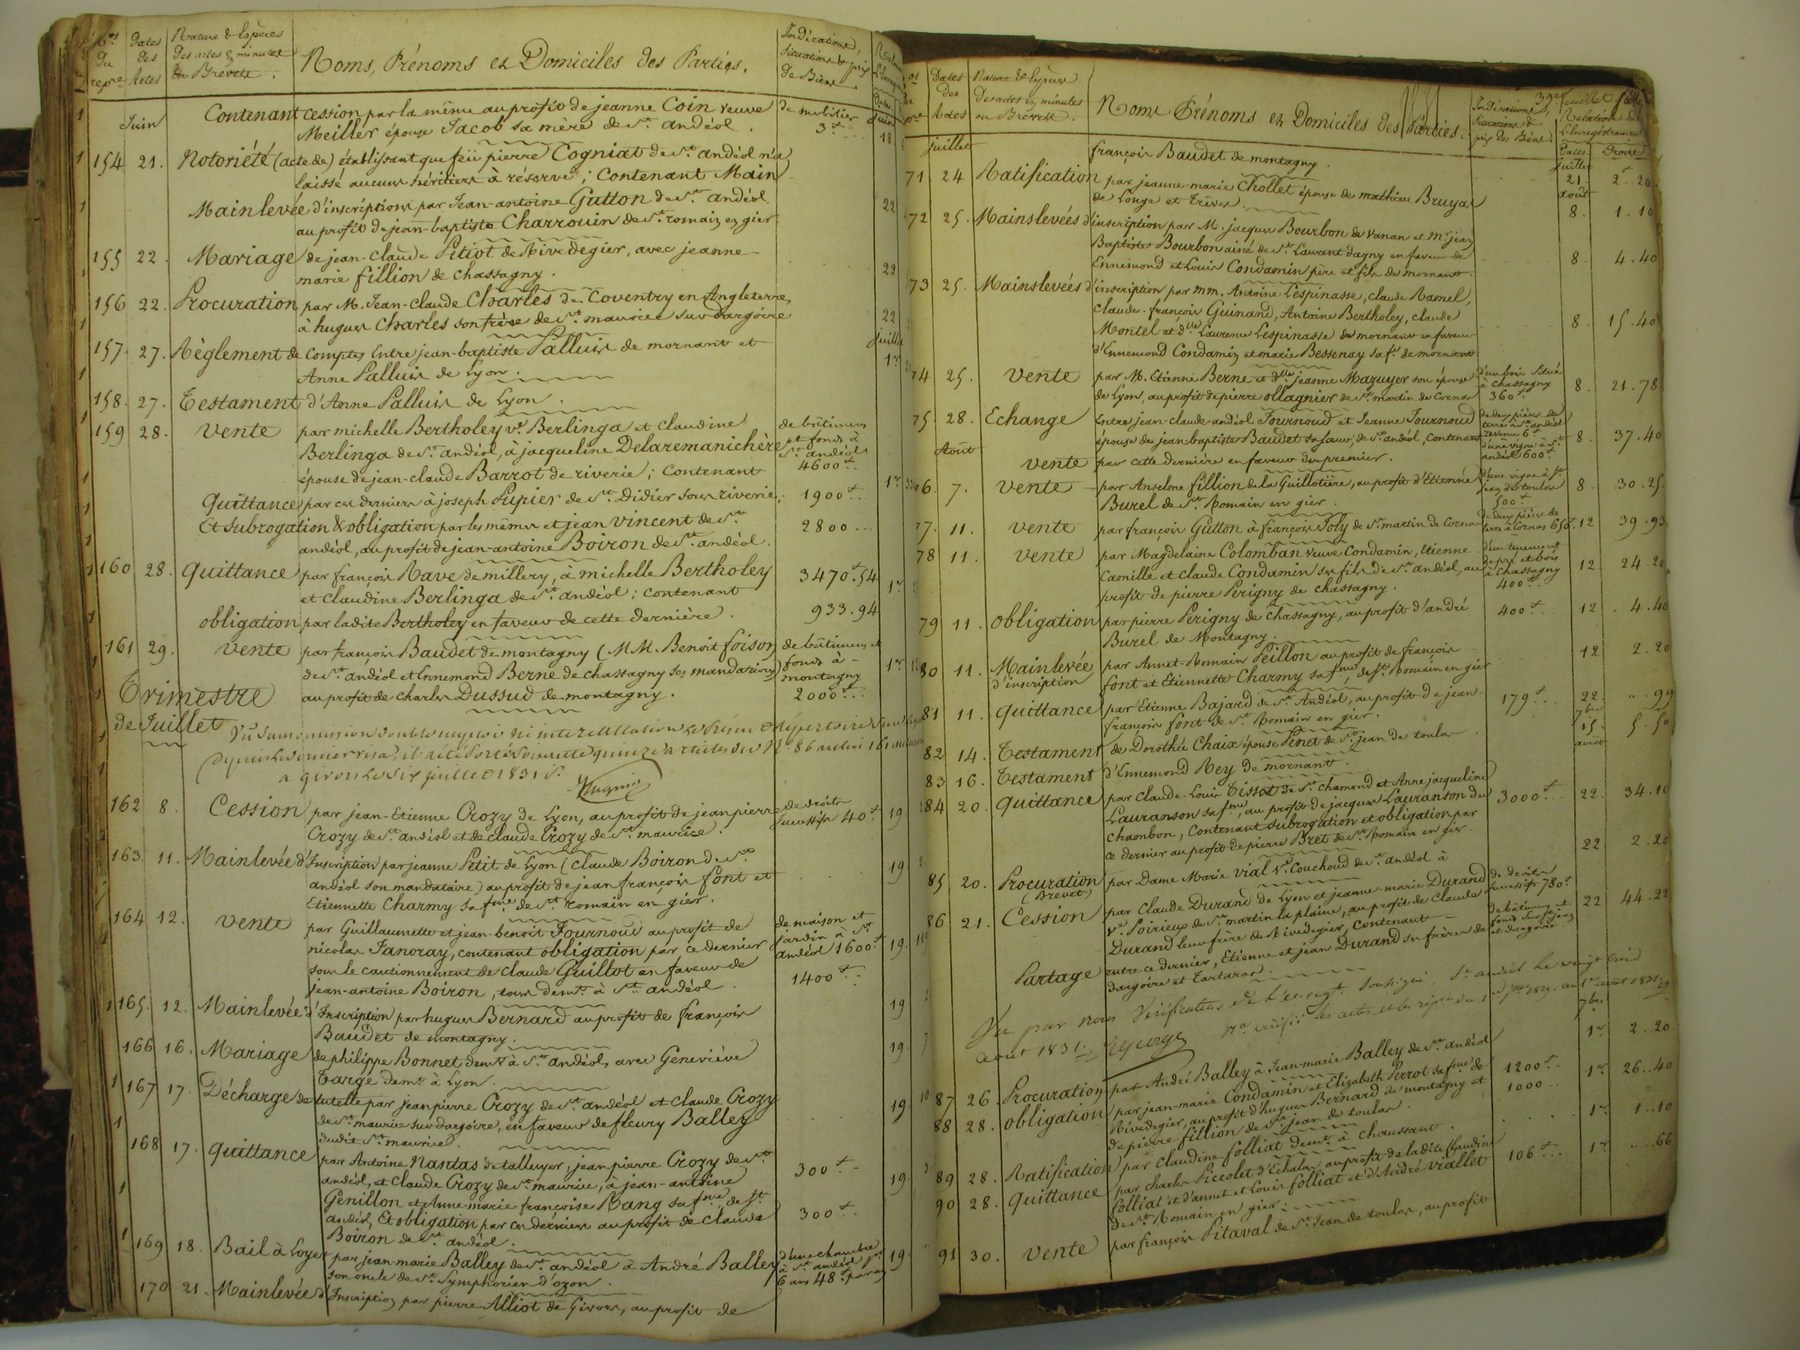 Nos du repre
Dates des Actes
Nature & Espèces des actes en minutes ou Brevets.
Noms, Prénoms et Domiciles des Parties.
Indications, situations & prix de Biens.
Juin
Contenant cession par la même au profit de jeanne Coin veuve de mobilier
Meiller épouse Jacob sa mère de St. andéol. 3 18
154 21. Notoriété (acte de) établissant que feü pierre Cogniat de St. andéol n'a
laissé aucuns héritiers à réserve; Contenant Main
Mainlevée d'inscriptions par Jean-antoine Gutton de St. andéol 22
au profit de jean-baptiste Charrouin de St. romain en gier
155 22. Mariage de jean-claude Pitiot de Rivedegier, avec jeanne-
marie fillion de chassagny. 22
156 22. Procuration par M. Jean-claude Charles de Coventry en Angleterre,
à hugues Charles son frère de St. maurice sur dargoire 22
juillet
157. 27. Règlement de Comptes Entre jean-baptiste Palluis de mornant et 1er
Anne Palluis de Lyon.
158. 27. Testament d'Anne Palluis de Lyon.
159 28. Vente par michelle Bertholey ve. Berlinga et Claudine de bâtimens
Berlinga de St. andéol, à jacqueline Delaremanichère et fonds à St. andéol
épouse de jean-claude Barrot de riverie; Contenant 4600tt. 1er
Quittance par ces derniers à joseph Pupier de St. Didier sous riverie; 1900tt.
Et subrogation & obligation par les mêmes et jean Vincent de St. 2800
andéol, au profit de jean-antoine Boiron de St. andéol.
160 28. Quittance par françois Rave de millery, à michelle Bertholey 3470tt.54 1er
et Claudine Berlinga de St. andéol; Contenant
obligation par ladite Bertholey en faveur de cette dernière. 933.94
161 29. Vente par françois Baudet de montagny (MM. Benoit foison de bâtimens et
de St. andéol et Ennemond Berne de chassagny ses mandataires) fonds à montagny 1er
au profit de charles Dussud de montagny. 2000tt.
Trimestre
de Juillet
a givors le six juillet 1831
162 8. Cession par jean-Etienne Crozy de Lyon, au profit de jean pierre de droits
Crozy de St. andéol et de claude Crozy de St. maurice. successifs 40tt 19
163. 11. Mainlevée d'Inscription par jeanne Petit de Lyon (Claude Boiron de St. 19
andéol son mandataire) au profit de jean françois font et
Etiennette Charmy sa fme. de St. romain en gier.
164 12. Vente par Guillaumette et jean-benoit Fournoud au profit de de maison et
nicolas Janoray, contenant obligation par ce dernier jardin à St. andéol 1600tt 19
sous le cautionnement de Claude Guillot en faveur de 1400tt.
jean-antoine Boiron, tous demt. à St. andéol.
165. 12. Mainlevée d'Inscription par hugues Bernard au profit de françois 19
Baudet de montagny.
166 16. Mariage de philippe Bonnet demt. à St. andéol, avec Geneviève 19.
Targe demt. à Lyon.
167 17. Décharge de tutelle par jean pierre Crozy de St. andéol et Claude Crozy
de St. maurice sur dargoire, en faveur de fleury Balley 19
dudit St. maurice.
168 17. Quittance par Antoine Nantas de talluyer, jean pierre Crozy de St. 300tt
andéol, et Claude Crozy de St. maurice, à jean-antoine 19
Genillon et Anne-marie françoise Rang sa fme. de St.
andéol, Et obligation par ces derniers au profit de Claude 300tt
Boiron de St. andéol.
169 18. Bail à Loyer par jean marie Balley de St. andéol à André Balley d'une chambre à St. andéol
son oncle de St. Symphorien d'ozon. 6 ans 48tt par an 19
170 21. Mainlevée d'Inscription par pierre Alliot de Givors, au profit de
Dates des Actes
Nature & Espèces des actes en minutes ou Brevets.
Noms Prénoms et Domiciles des Parties.
Indications, Situations & prix des Biens.
Relation de l'Enregistrement
Dates Droits
juillet françois Baudet de montagny. juillet
71 24 Ratification par jeanne-marie Chollet épouse de mathieu Bruyas 21 2.20
de Longe et Trèves. août
72 25. Mainslevées d'inscription par M. jacques Bourbon de Vanan et Mr. jean 8. 1.10
Baptiste Bourbon ainé de St. Laurent dagny en faveur de
Ennemond et Louis Condamin père et fils de mornant. 8. 4.40
73 25. Mainslevées d'inscription par mm. Antoine Lespinasse, claude Ramel,
Claude-françois Guinand, Antoine Bertholey, claude
Montel et dlle. Laurence Lespinasse de mornant en faveur 8. 15.40
d'Ennemond Condamin et marie Bessenay sa fe. de mornant
74 25. Vente par M. Etienne Berne et dlle. jeanne Mazuyer son épouse d'un bois situé à chassagny
de Lyon, au profit de pierre ollagnier de St. martin de Cornas 360tt. 8. 21.78
75. 28. Echange Entre jean-claude-andéol Fournoud et Jeanne Fournoud
épouse de jean-baptiste Baudet sa sœur, de St. andéol, Contenant 8. 37.40
Août
Vente par cette dernière en faveur du premier.
76. 7. Vente par Anselme fillion de la Guillotière, au profit d'Etienne d'une vigne à St. jean de toulas
Burel de St. Romain en gier. 500tt 8. 30.25
77. 11. Vente par françois Gutton à françois Joly de St. martin de Cornas 650. 12 39.93
78 11. Vente par Magdelaine Colomban veuve Condamin, Etienne d'un tenement
Camille et claude Condamin ses fils de St. andéol, au de pré et bois à chassagny 12 24.20
profit de pierre Perigny de chassagny. 400tt.
79 11. Obligation par pierre Perigny de chassagny, au profit d'andré 400tt. 12 4.40
Burel de Montagny.
80 11. Mainlevée d'inscription par Annet-Romain Peillon au profit de françois 12 2.20
font et Etiennette Charmy sa fme. de St. Romain en gier
81 11. Quittance par Etienne Bajard de St. Andéol, au profit de jean 179tt. 22. ".99
françois font de St. Romain en gier. 7bre
82 14. Testament de Dorothée Chaix épouse Penet de St. jean de toulas 15. 5.50
83 16. Testament d'Ennemond Rey de mornant. août
84 20. Quittance par Claude-Louis Tissot de St. chamond et Anne jacqueline
Lauranson sa fme, au profit de jacques Lauranson du 3000tt. 22. 34.10
chambon, contenant subrogation et obligation par
ce dernier au profit de pierre Bret de St. Romain en gier. 22 2.20
85 20. Procuration (Brevet) par Dame Marie Vial ve. Couchoud de St. andéol à
86 21. Cession par Claude Durand de Lyon et jeanne-marie Durand de droits successifs 780tt
ve. Poirieux de St. martin la plaine, au profit de Claude 22 44.22
Durand leur frère de Rivedegier, Contenant
Partage entre ce dernier, Etienne et jean Durand ses frères de
dargoire et Tartaras.
Vu par nous Vérificateur de l'enregt. soussigné, St. andéol le vingt trois
aout 1831.
7bre
87 26. Procuration par André Balley à Jean-marie Balley de St. andéol 1er 2.20
88 28. Obligation par jean-marie Condamin et Elizabeth Perrot sa fme. de 1200tt. 1er 26.40
Rivedegier, au profit d'hugues Bernard de montagny et 1000
de pierre fillion de St. jean de toulas.
89 28. Ratification par Claudine folliat demt. à chaussant. 1er 1.10
90 28. Quittance par charles Piccolet d'Echalas au profit de ladite Claudine 106tt. 1er ".66
folliat et d'annet et Louis folliat et d'André Viallet
de St. Romain en gier.
91 30. Vente par françois Pitaval de St. Jean de toulas, au profit